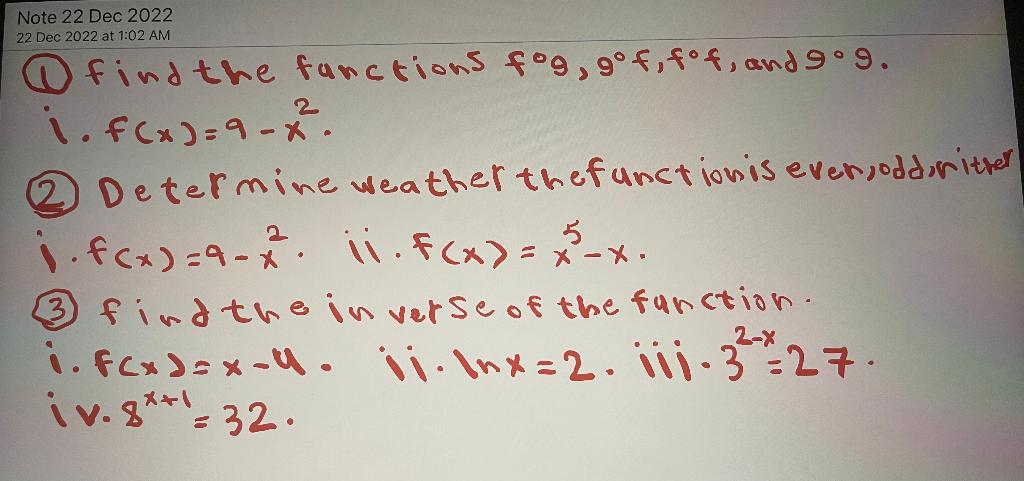 Note 22 Dec 2022
22 Dec 2022 at 1:02 AM
① find the functions f°g, g°f, f°f, and g°g.
i. f(x)=9-x².
② Determine weather the function is even, odd, nither
i. f(x)=9-x². ii. f(x)=x⁵-x.
③ find the inverse of the function.
i. f(x)=x-4. ii. lnx=2. iii. 3²⁻ˣ=27.
iv. 8ˣ⁺¹=32.